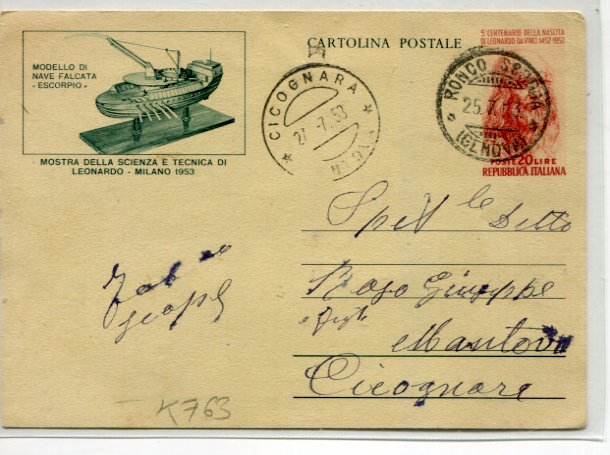 CARTOLINA POSTALE
5° CENTENARIO DELLA NASCITA
DI LEONARDO DA VINCI 1452-1952
MODELLO DI
NAVE FALCATA
"ESCORPIO"
MOSTRA DELLA SCIENZA E TECNICA DI
LEONARDO - MILANO 1953
CICOGNARA
27 -7. 53
RONCO SCRIVIA
25.7.53
(GENOVA)
POSTE 20 LIRE
REPUBBLICA ITALIANA
Spett le Ditta
Giuseppe
e Figli
Mantova
Cicognara
K763